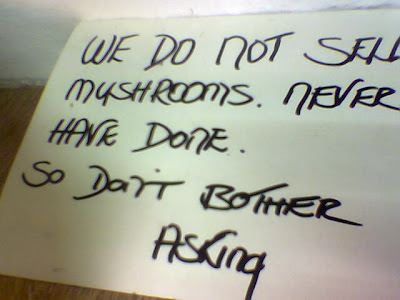 WE DO NOT SELL
MUSHROOMS. NEVER
HAVE DONE.
SO DON'T BOTHER
ASKING